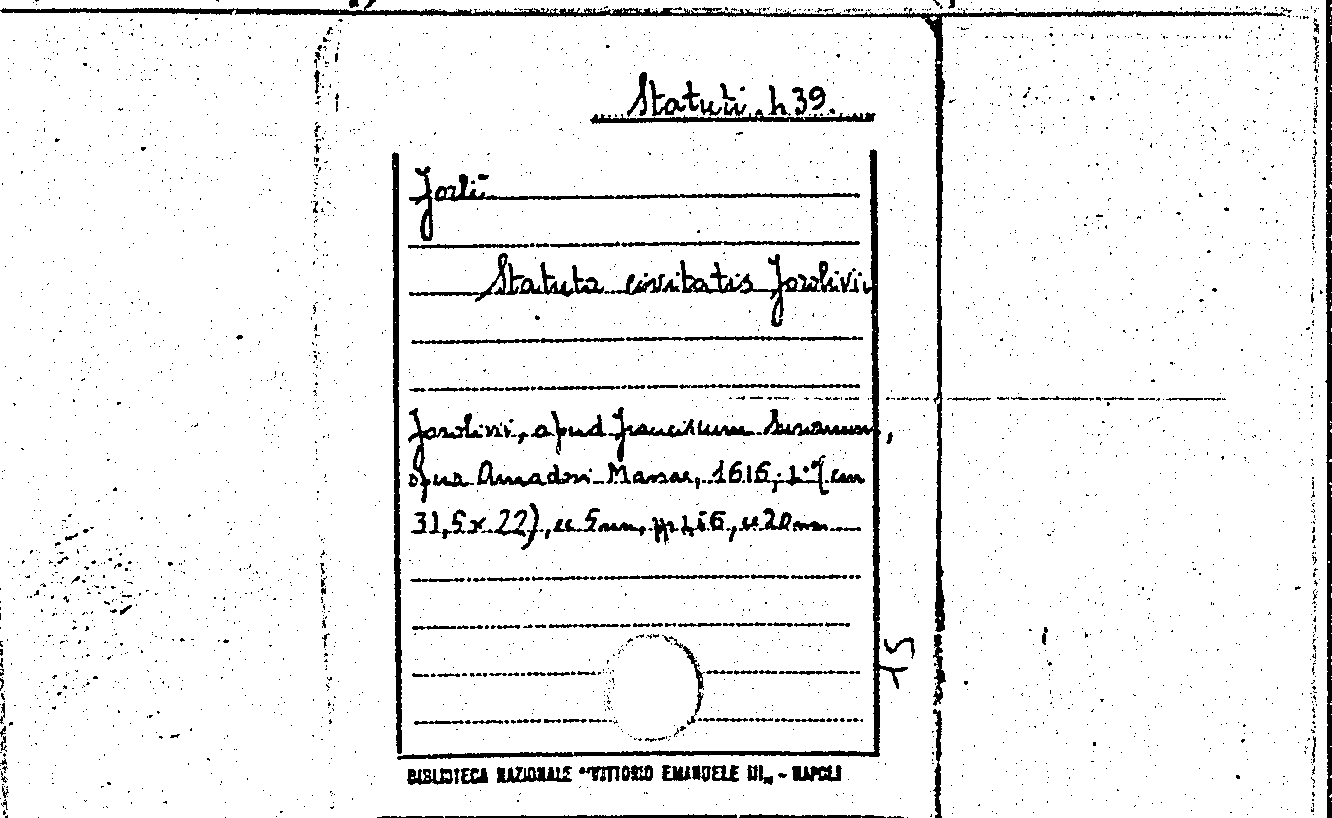 Statuti h 39.
Forlì
Statuta civitatis Forolivii
Forolivii, apud Franciscum Suzanum,
opus Amadori Massae, 1616; 2° (cm
31,5 x 22), cc 5 nn, pp 156, cc 20 nn
BIBLIOTECA NAZIONALE "VITTORIO EMANUELE III„ - NAPOLI